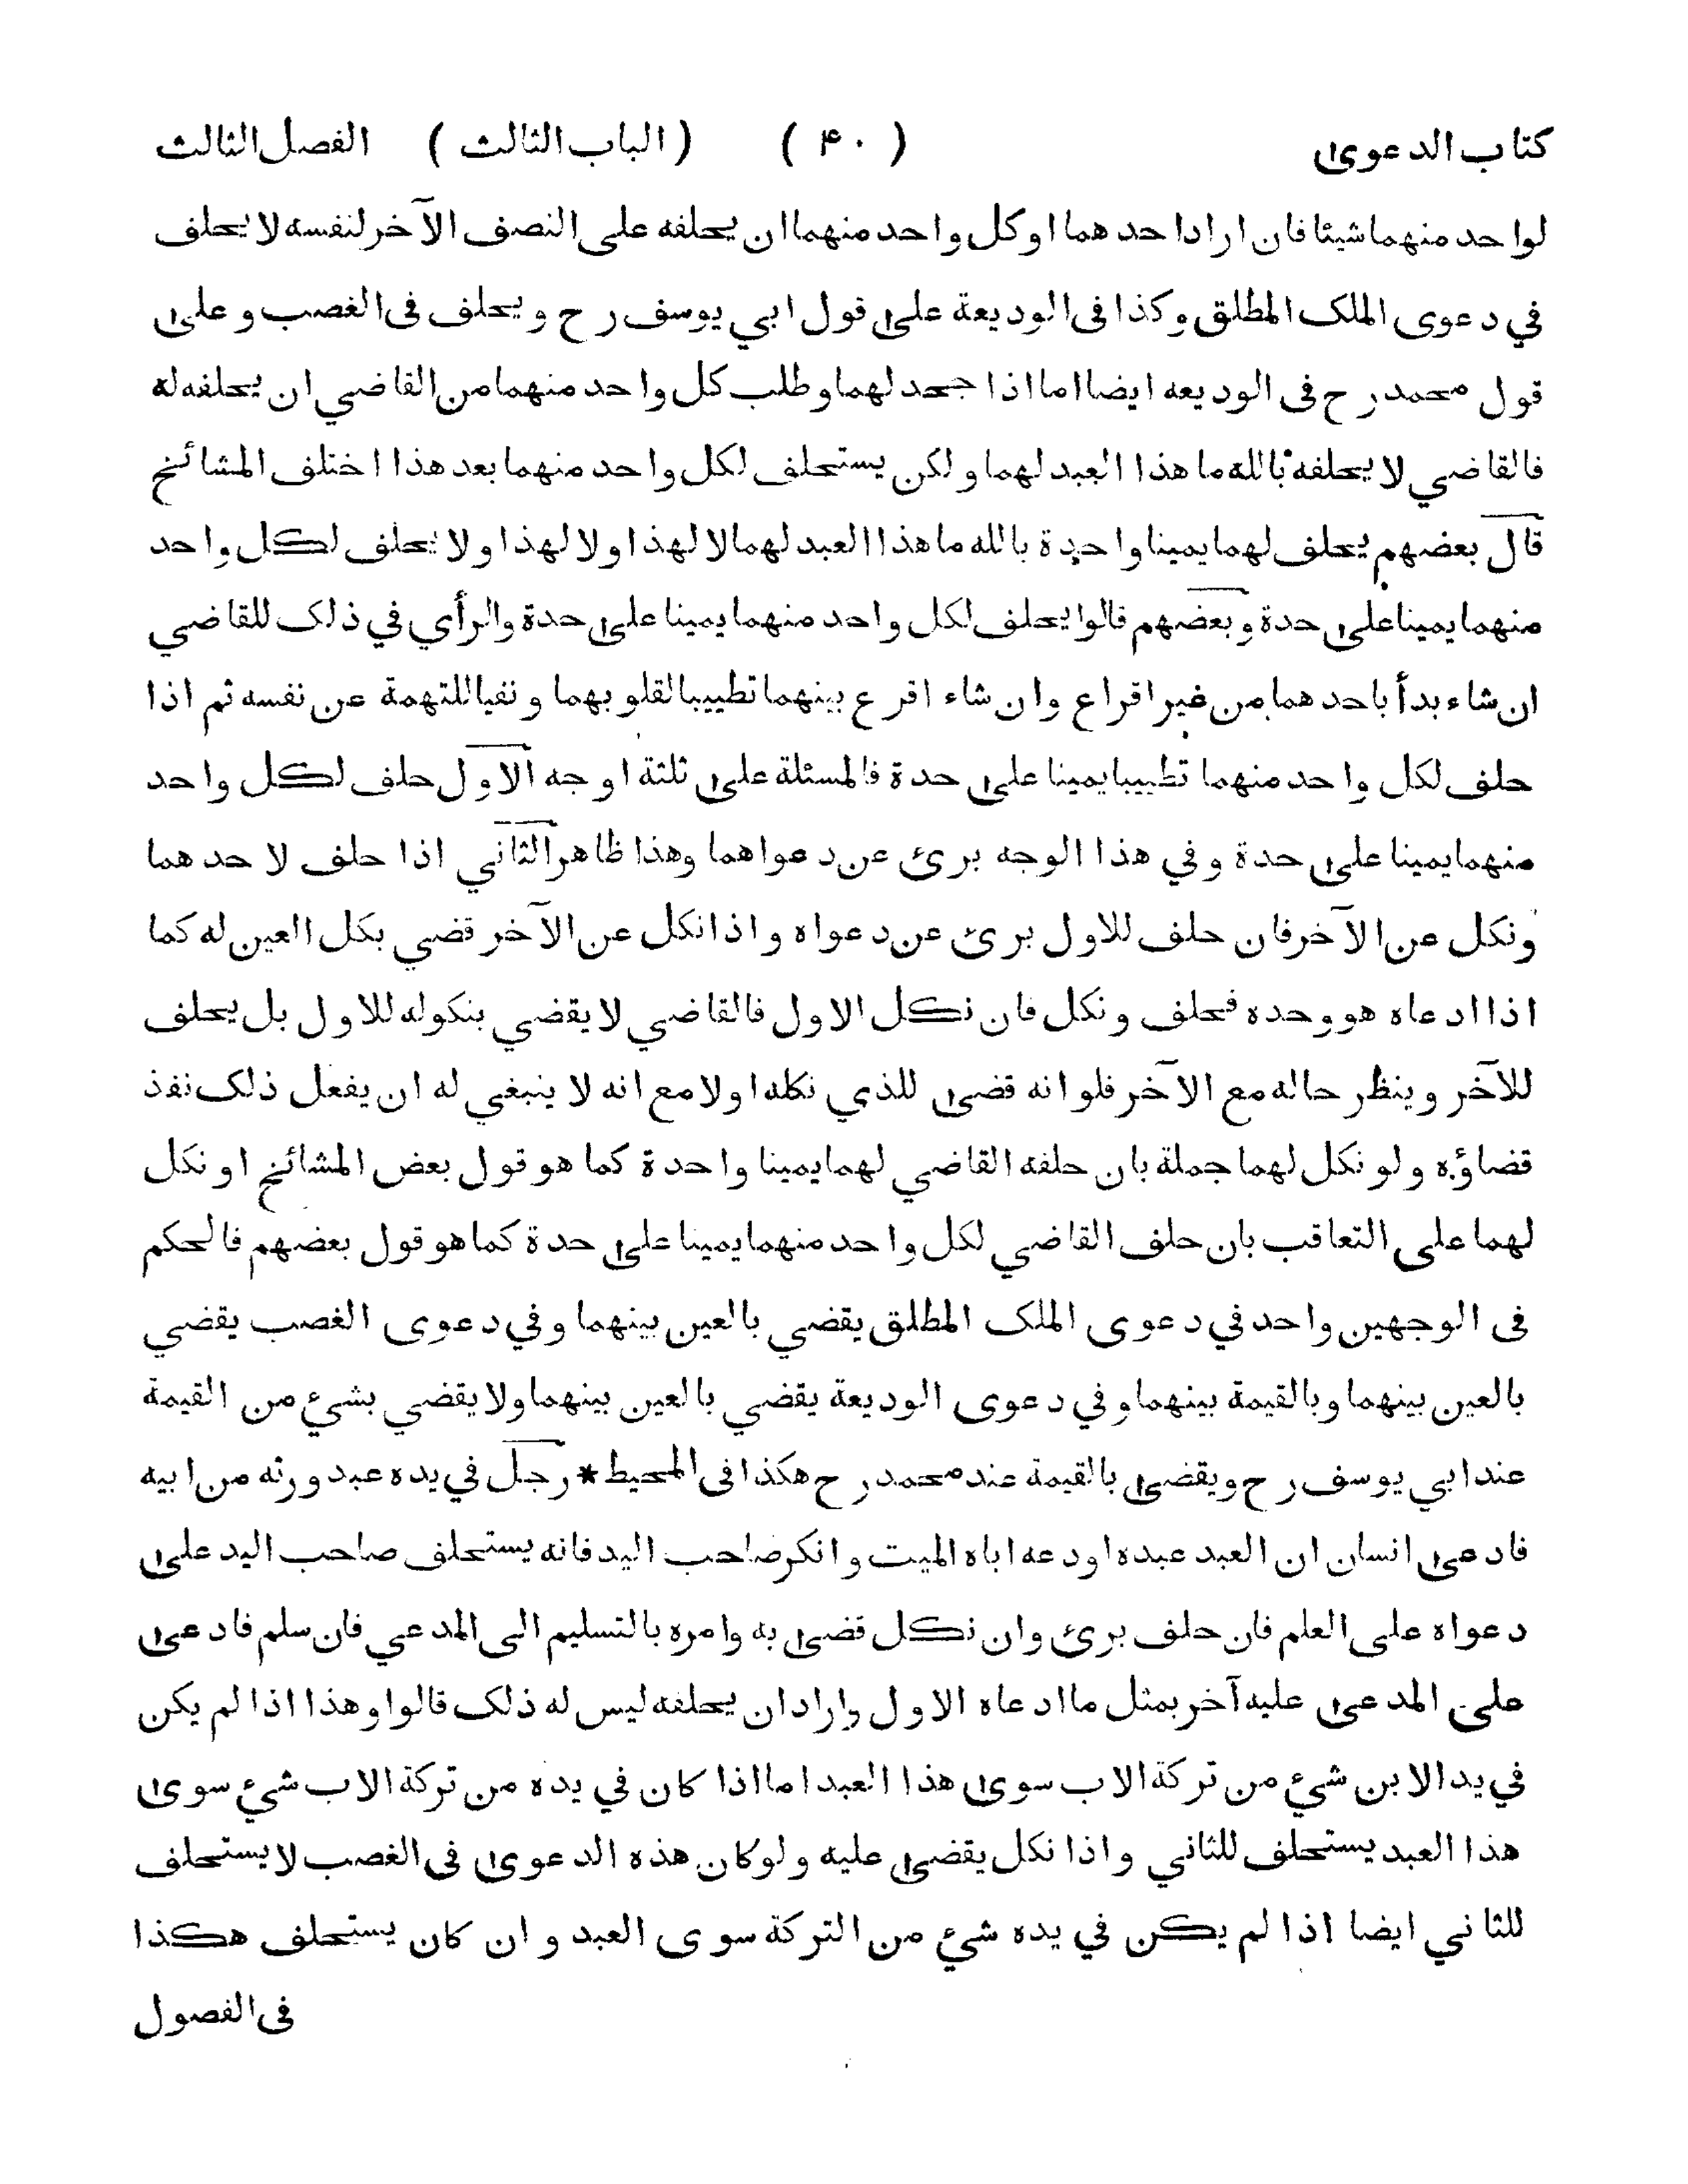 كتاب الدعوى ( ۴۰ ) ( الباب الثالث ) الفصل الثالث
لواحد منهما شيئا فان اراد احدهما او كل واحد منهما ان يحلفه على النصف الآخر لنفسه لا يحلف
في دعوى الملك المطلق وكذا فى الوديعة على قول ابي يوسف رح ويحلف فى الغصب وعلى
قول محمد رح فى الوديعه ايضا اما اذا جحد لهما وطلب كل واحد منهما من القاضي ان يحلفه له
فالقاضي لا يحلفه بالله ما هذا العبد لهما ولكن يستحلف لكل واحد منهما بعد هذا اختلف المشائخ
قال بعضهم يحلف لهما يمينا واحدة بالله ما هذا العبد لهما لا لهذا ولا لهذا ولا يحلف لكل واحد
منهما يمينا على حدة وبعضهم قالوا يحلف لكل واحد منهما يمينا على حدة والرأي في ذلك للقاضي
ان شاء بدأ باحدهما من غير اقراع وان شاء اقرع بينهما تطييبا لقلوبهما ونفيا للتهمة عن نفسه ثم اذا
حلف لكل واحد منهما تطييبا يمينا على حدة فالمسئلة على ثلثة اوجه الاول حلف لكل واحد
منهما يمينا على حدة وفي هذا الوجه برئ عن دعواهما وهذا ظاهر الثاني اذا حلف لاحدهما
ونكل عن الآخر فان حلف للاول برئ عن دعواه واذا نكل عن الآخر قضي بكل العين له كما
اذا ادعاه هو وحده فحلف ونكل فان نكل الاول فالقاضي لا يقضي بنكوله للاول بل يحلف
للآخر وينظر حاله مع الآخر فلو انه قضى للذي نكله اولا مع انه لا ينبغي له ان يفعل ذلك نفذ
قضاؤه ولو نكل لهما جملة بان حلفه القاضي لهما يمينا واحدة كما هو قول بعض المشائخ او نكل
لهما على التعاقب بان حلف القاضي لكل واحد منهما يمينا على حدة كما هو قول بعضهم فالحكم
فى الوجهين واحد في دعوى الملك المطلق يقضي بالعين بينهما وفي دعوى الغصب يقضي
بالعين بينهما وبالقيمة بينهما وفي دعوى الوديعة يقضي بالعين بينهما ولا يقضي بشئ من القيمة
عند ابي يوسف رح ويقضى بالقيمة عند محمد رح هكذا فى المحيط * رجل في يده عبد ورثه من ابيه
فادعى انسان ان العبد عبده اودعه اباه الميت وانكر صاحب اليد فانه يستحلف صاحب اليد على
دعواه على العلم فان حلف برئ وان نكل قضى به وامره بالتسليم الى المدعي فان سلم فادعى
على المدعى عليه آخر بمثل ما ادعاه الاول واراد ان يحلفه ليس له ذلك قالوا وهذا اذا لم يكن
في يد الابن شئ من تركة الاب سوى هذا العبد اما اذا كان في يده من تركة الاب شئ سوى
هذا العبد يستحلف للثاني واذا نكل يقضى عليه ولو كان هذه الدعوى فى الغصب لا يستحلف
للثاني ايضا اذا لم يكن في يده شئ من التركة سوى العبد وان كان يستحلف هكذا
فى الفصول